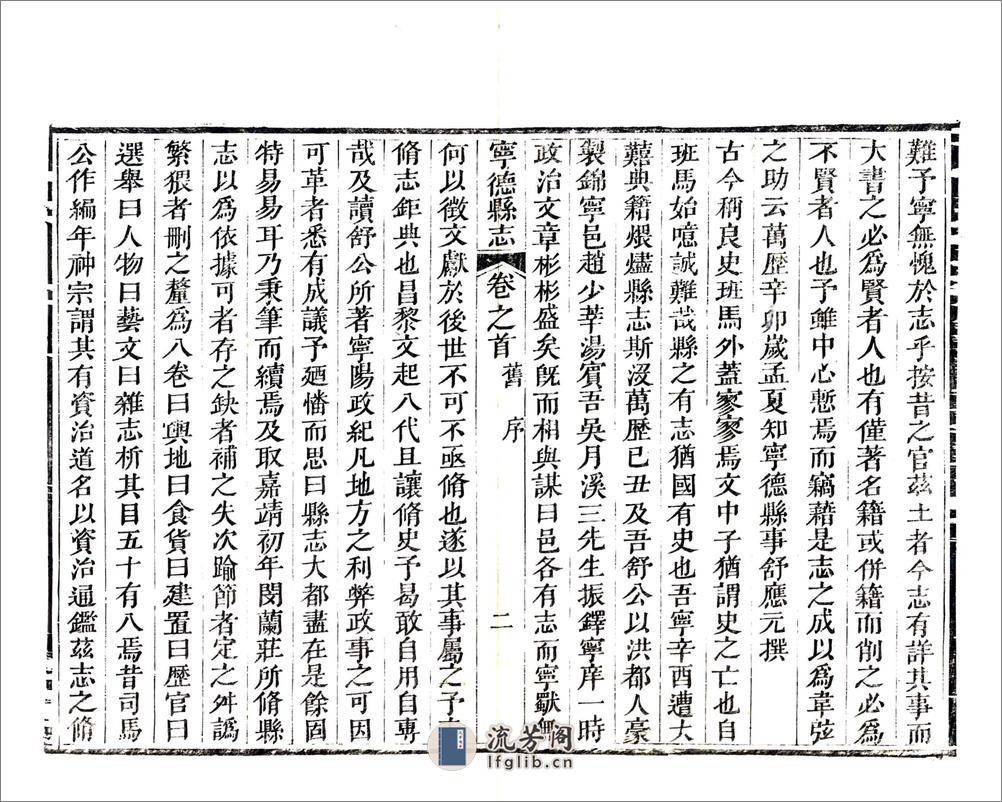 難予寧無愧於志乎按昔之官茲土者今志有詳其事而
大書之必為賢者人也有僅著名籍或併籍而削之必為
不賢者人也予雖中心慙焉而竊藉是志之成以為韋弦
之助云萬歷辛卯歲孟夏知寧德縣事舒應元撰
古今稱良史班馬外蓋寥寥焉文中子猶謂史之亡也自
班馬始噫誠難哉縣之有志猶國有史也吾寧辛酉遭大
囏典籍煨燼縣志斯沒萬歷已丑及吾舒公以洪都人豪
製錦寧邑趙少莘湯賓吾吳月溪三先生振鐸寧庠一時
政治文章彬彬盛矣旣而相與謀曰邑各有志而寧獨無
寧德縣志 卷之首 舊序 二
何以徵文獻於後世不可不亟脩也遂以其事屬之予
脩志鉅典也昌黎文起八代且讓脩史予曷敢自用自專
哉及讀舒公所著寧陽政紀凡地方之利弊政事之可因
可革者悉有成議予廼憣而思曰縣志大都盡在是餘固
特易易耳乃秉筆而續焉及取嘉靖初年閔蘭莊所脩縣
志以為依據可者存之缺者補之失次踰節者定之舛譌
繁猥者刪之釐為八卷曰輿地曰食貨曰建置曰歷官曰
選舉曰人物曰藝文曰雜志析其目五十有八焉昔司馬
公作編年神宗謂其有資治道名以資治通鑑茲志之脩
流芳阁
lfglib.cn